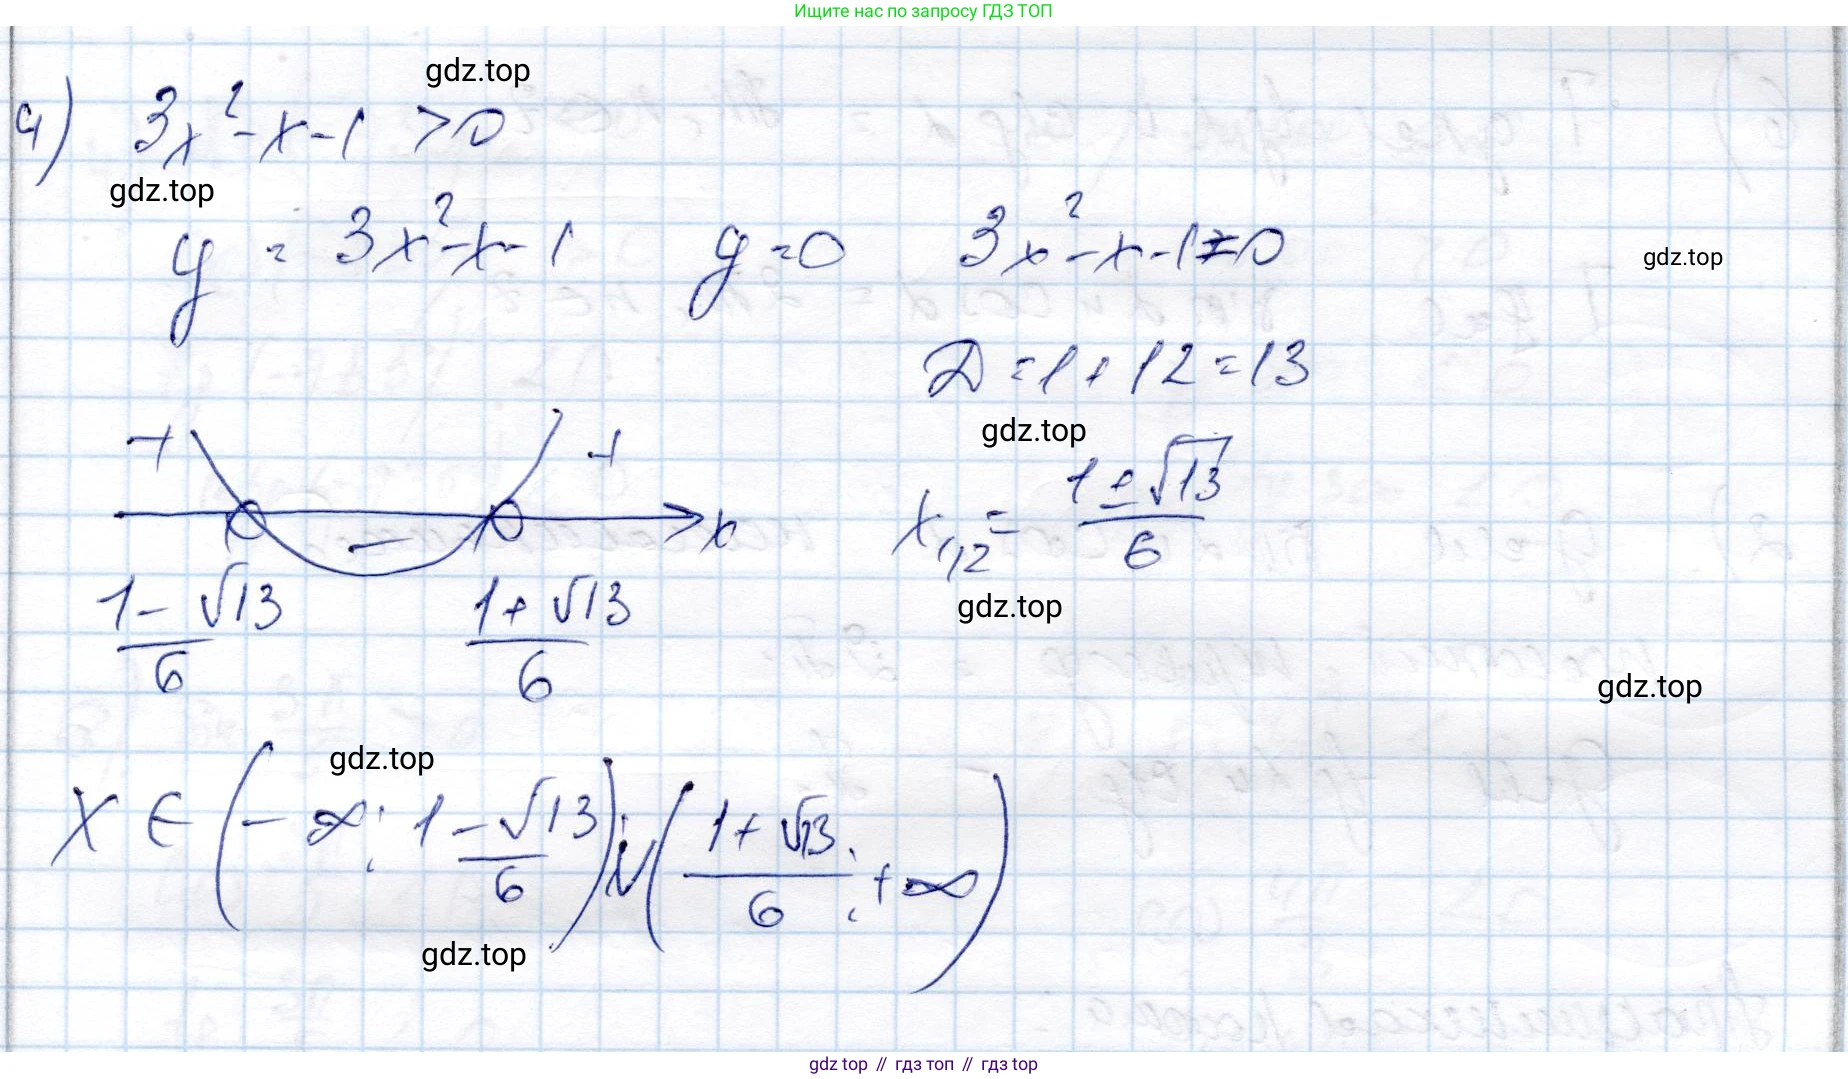 Ищите нас по запросу ГДЗ ТОП
gdz.top
4) 3x²-x-1 >0
gdz.top
y = 3x²-x-1 y=0 3x²-x-1=0
gdz.top
D=1+12=13
gdz.top
+ +
x₁,₂= (1±√13)/6
- x
gdz.top
(1-√13)/6 (1+√13)/6
gdz.top
gdz.top
x ∈ (-∞; (1-√13)/6) ∪ ((1+√13)/6; +∞)
gdz.top
gdz top // гдз топ // гдз top